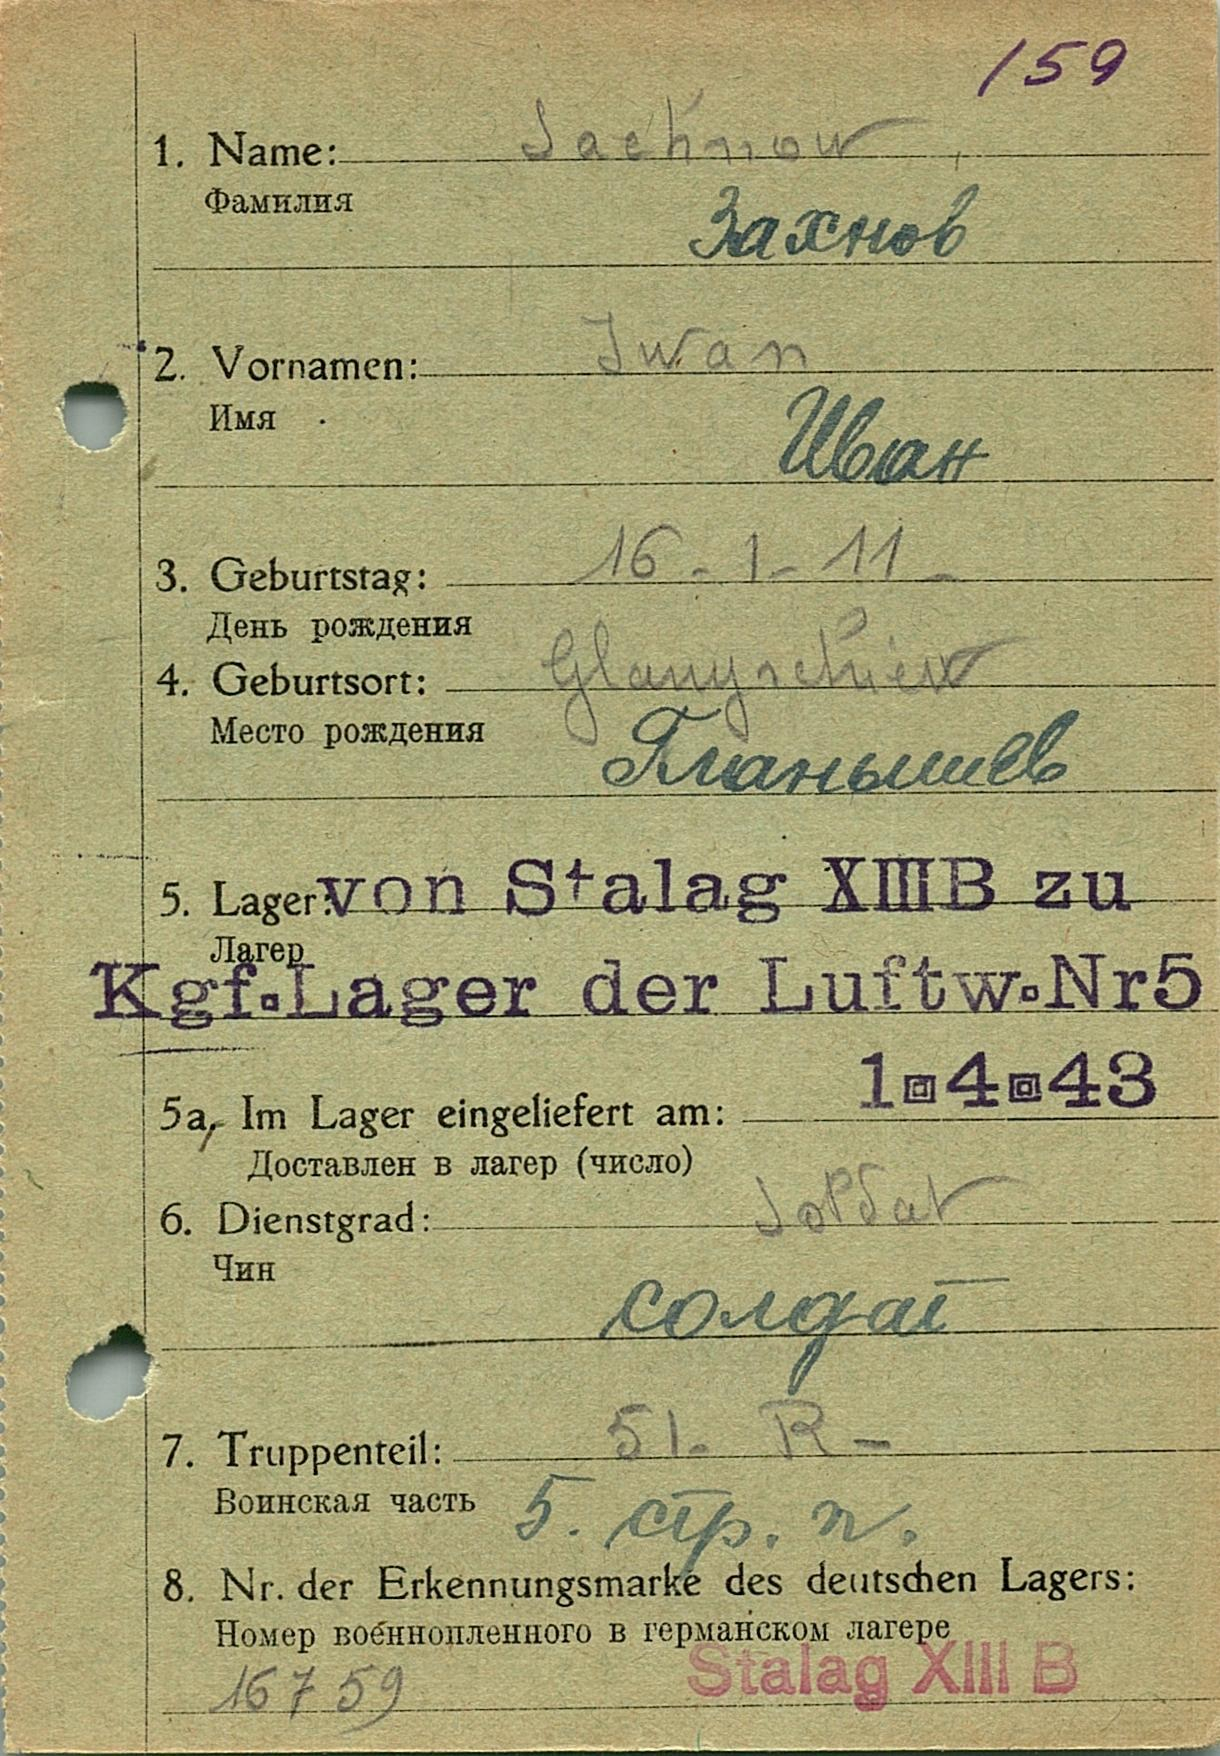 159
1. Name: Sachnow
Фамилия
Захнов
2. Vornamen: Iwan
Имя
Иван
3. Geburtstag: 16-1-11-
День рождения
4. Geburtsort: Glanyschiew
Место рождения
Гланышев
5. Lager: von Stalag XIII B zu
Лагер
Kgf.Lager der Luftw.Nr5
1.4.43
5a, Im Lager eingeliefert am:
Доставлен в лагер (число)
6. Dienstgrad: Soldat
Чин
солдат
7. Truppenteil: 51. R-
Воинская часть 5. стр. п.
8. Nr. der Erkennungsmarke des deutschen Lagers:
Номер военнопленного в германском лагере
16759 Stalag XIII B